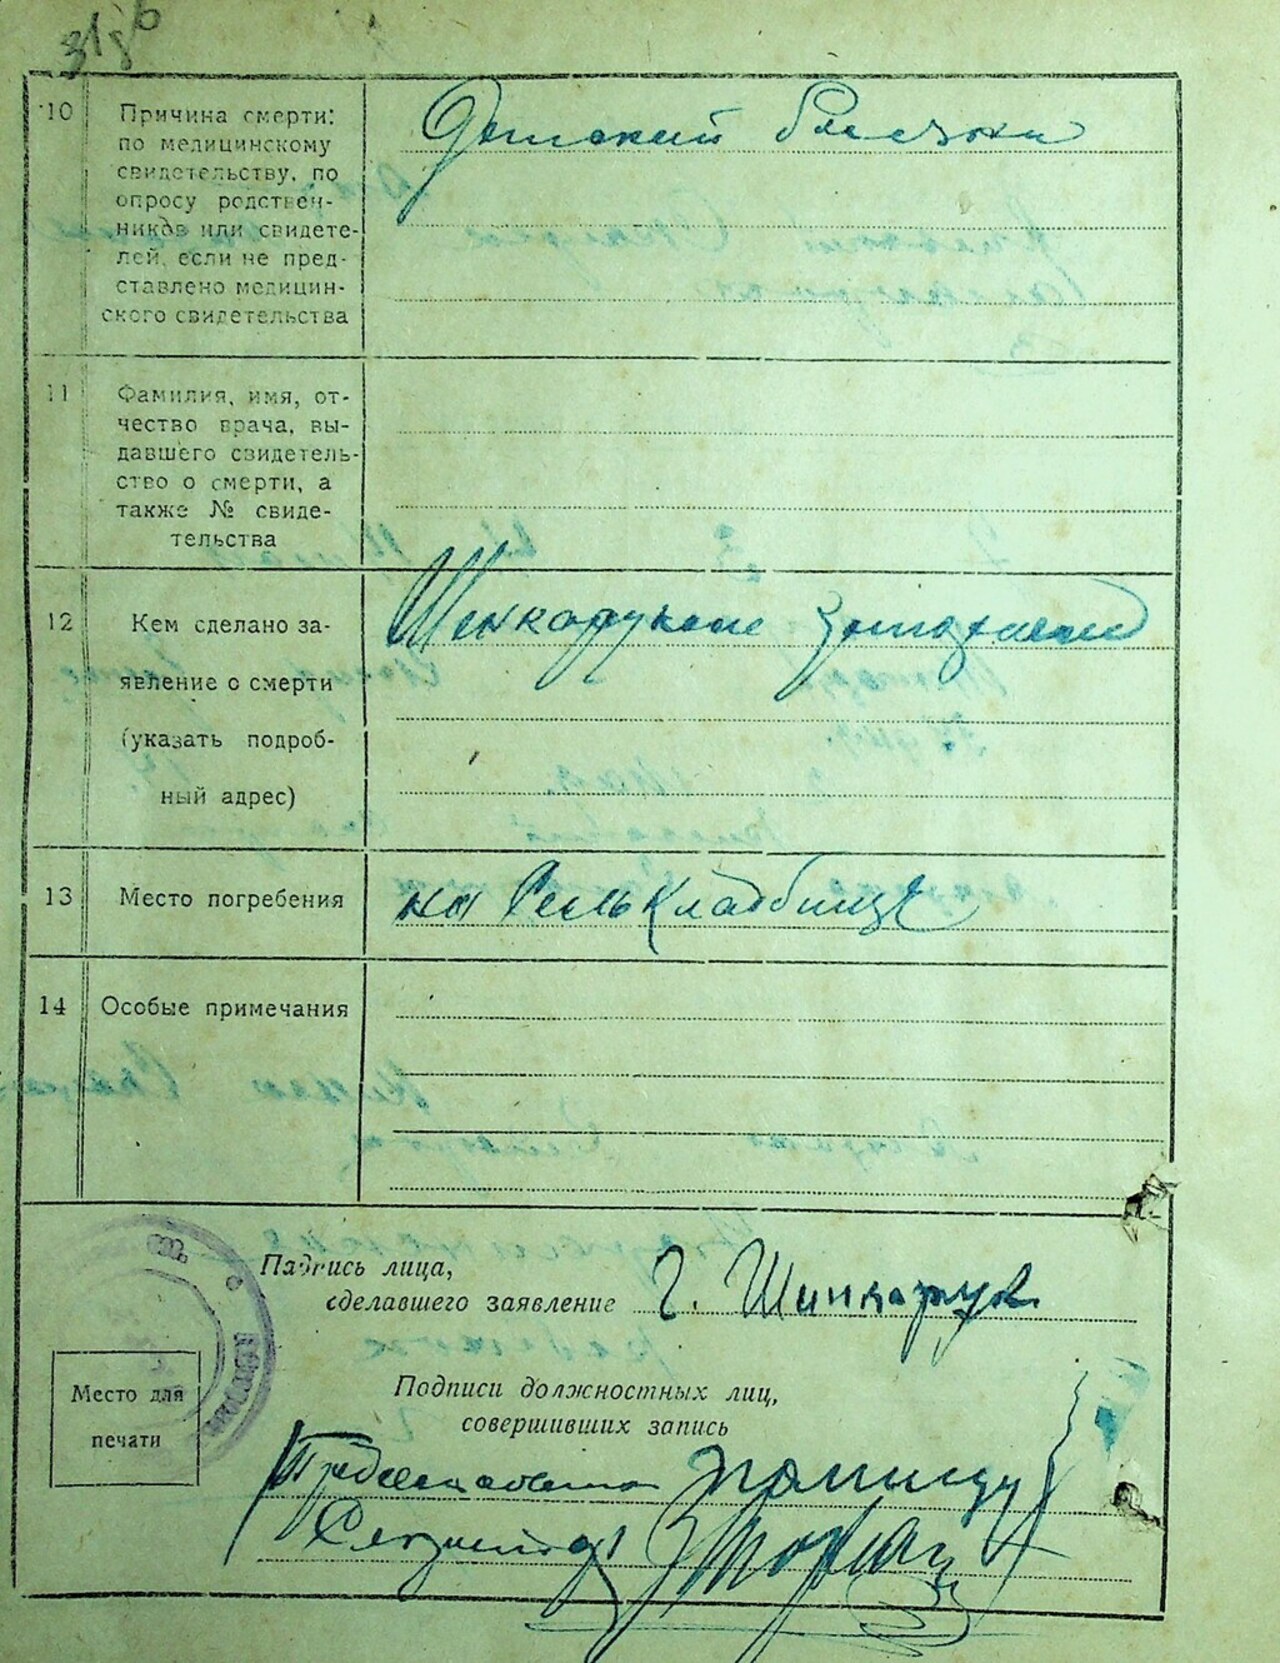 10
Причина смерти:
по медицинскому
свидетельству, по
опросу родствен-
ников или свидете-
лей, если не пред-
ставлено медицин-
ского свидетельства
Детский
11
Фамилия, имя, от-
чество врача, вы-
давшего свидетель-
ство о смерти, а
также № свиде-
тельства
12
Кем сделано за-
явление о смерти
(указать подроб-
ный адрес)
Шенкаруком
13
Место погребения
на Селькладбище
14
Особые примечания
Падпись лица,
сделавшего заявление
Г. Шинкарук
Место для
печати
Подписи должностных лиц,
совершивших запись
Секретарь